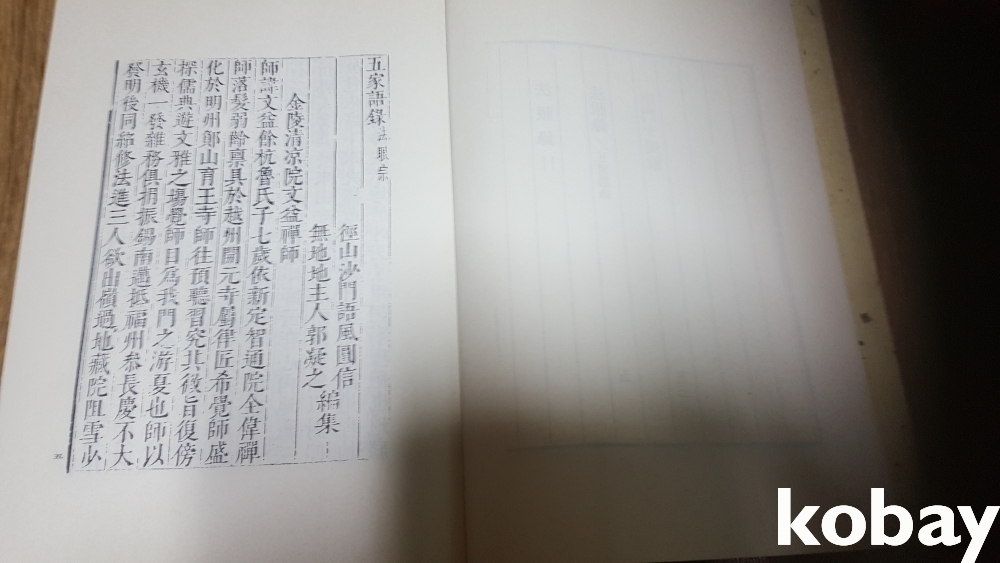 五家語錄 法眼宗
徑山沙門語風圓信
無地地主人郭凝之 編集
金陵清凉院文益禪師
師諱文益餘杭魯氏子七歲依新定智通院全偉禪
師落髮弱齡禀具於越州開元寺屬律匠希覺師盛
化於明州鄮山育王寺師往預聽習究其微旨復傍
探儒典遊文雅之塲覺師目爲我門之游夏也師以
玄機一發雜務俱捐振錫南邁抵福州叅長慶不大
發明後同紹修法進三人欲出嶺過地藏院阻雪少
kobay